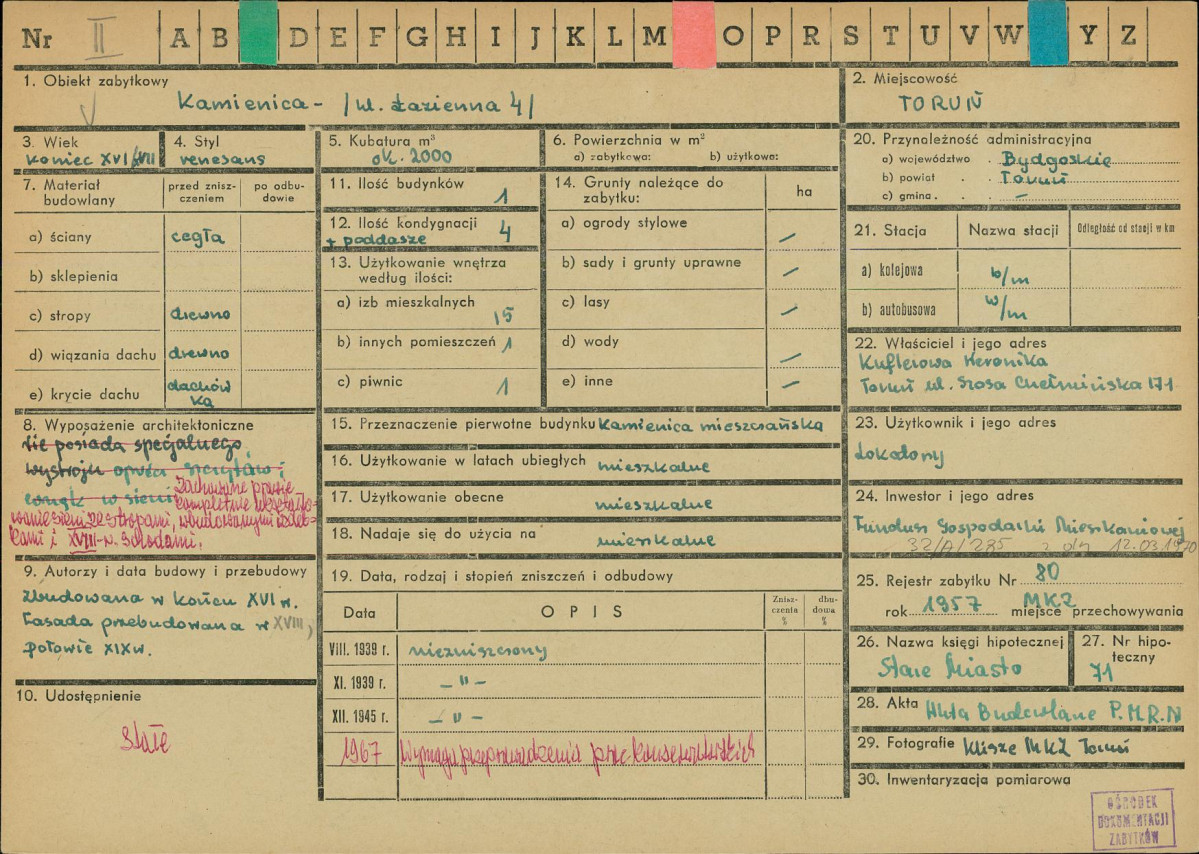 Nr II A B D E F G H I J K L M O P R S T U V W Y Z
1. Obiekt zabytkowy
Kamienica - /ul. Łazienna 4/
2. Miejscowość
TORUŃ
3. Wiek
koniec XVI/XVII
4. Styl
renesans
5. Kubatura m³
ok. 2000
6. Powierzchnia w m²
a) zabytkowa: b) użytkowa:
7. Materiał budowlany
przed znisz-
czeniem
po odbu-
dowie
a) ściany cegła
b) sklepienia
c) stropy drewno
d) wiązania dachu drewno
e) krycie dachu dachów
ka
8. Wyposażenie architektoniczne
Nie posiada specjalnego
wystroju oprócz szczytów i
wnęk w sieni Zachowane prawie
kompletnie ukształto-
wanie sieni ze stropami, wbudowanymi
i XVIII-w. schodami.
9. Autorzy i data budowy i przebudowy
Zbudowana w końcu XVI w.
Fasada przebudowana w XVIII,
połowie XIX w.
10. Udostępnienie
Stałe
11. Ilość budynków 1
12. Ilość kondygnacji 4
+ poddasze
13. Użytkowanie wnętrza
według ilości:
a) izb mieszkalnych 15
b) innych pomieszczeń 1
c) piwnic 1
14. Grunty należące do
zabytku:
ha
a) ogrody stylowe —
b) sady i grunty uprawne —
c) lasy —
d) wody —
e) inne —
15. Przeznaczenie pierwotne budynku Kamienica mieszczańska
16. Użytkowanie w latach ubiegłych mieszkalne
17. Użytkowanie obecne mieszkalne
18. Nadaje się do użycia na mieszkalne
19. Data, rodzaj i stopień zniszczeń i odbudowy
Data OPIS
Znisz-
czenia
%
dbu-
dowa
%
VIII. 1939 r. niezniszczony
XI. 1939 r. — " —
XII. 1945 r. — " —
1967 Wymaga przeprowadzenia prac konserwatorskich
20. Przynależność administracyjna
a) województwo . Bydgoskie
b) powiat . . Toruń
c) gmina . . —
21. Stacja Nazwa stacji Odległość od stacji w km
a) kolejowa w/m
b) autobusowa w/m
22. Właściciel i jego adres
Kuflerowa Weronika
Toruń ul. Szosa Chełmińska 171
23. Użytkownik i jego adres
Lokatorzy
24. Inwestor i jego adres
Fundusz Gospodarki Mieszkaniowej
32/A/285 z dn 12.03.1970
25. Rejestr zabytku Nr 80
rok 1957 miejsce przechowywania
MKZ
26. Nazwa księgi hipotecznej
Stare Miasto
27. Nr hipo-
teczny
71
28. Akta Akta Budowlane P.M.R.N
29. Fotografie Klisze MKZ Toruń
30. Inwentaryzacja pomiarowa
OŚRODEK
DOKUMENTACJI
ZABYTKÓW